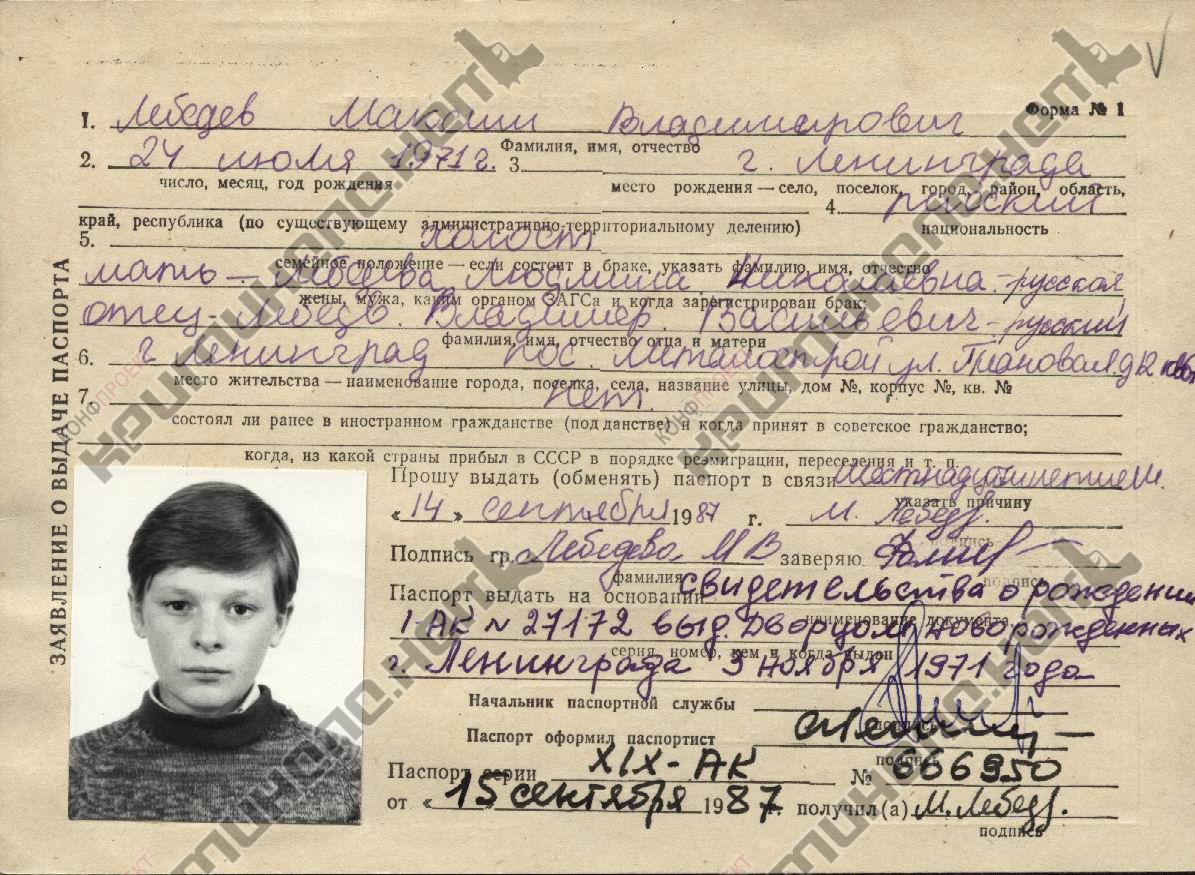 Форма № 1
1. Лебедев Максим Владимирович
Фамилия, имя, отчество
2. 24 июля 1971 г. 3. г. Ленинграда
число, месяц, год рождения место рождения — село, поселок, город, район, область,
4. русский
край, республика (по существующему административно-территориальному делению) национальность
5. холост
семейное положение — если состоит в браке, указать фамилию, имя, отчество
мать — Лебедева Людмила Николаевна - русская
жены, мужа, каким органом ЗАГСа и когда зарегистрирован брак;
отец - Лебедев Владимир Васильевич - русский
фамилия, имя, отчество отца и матери
6. г. Ленинград пос. Металострой ул. Плановая д 12
место жительства — наименование города, поселка, села, название улицы, дом №, корпус №, кв. №
7. нет.
состоял ли ранее в иностранном гражданстве (подданстве) и когда принят в советское гражданство;
когда, из какой страны прибыл в СССР в порядке реэмиграции, переселения и т. п.
ЗАЯВЛЕНИЕ О ВЫДАЧЕ ПАСПОРТА
Прошу выдать (обменять) паспорт в связи
указать причину
« 14 » сентября 1987 г. М. Лебедев.
подпись
Подпись гр. Лебедева М В заверяю
фамилия подпись
Паспорт выдать на основании свидетельства о рождении
наименование документа,
I-АК № 27172 выд. Дворцом новорожденных
серия, номер, кем и когда выдан
г. Ленинграда 3 ноября 1971 года
Начальник паспортной службы
подпись
Паспорт оформил паспортист
подпись
Паспорт серии XIX-АК № 666950
от « 15 сентября 1987 г. получил(а) М. Лебедев.
подпись
КОНФПРОЕКТ
КОНФПРОЕКТ